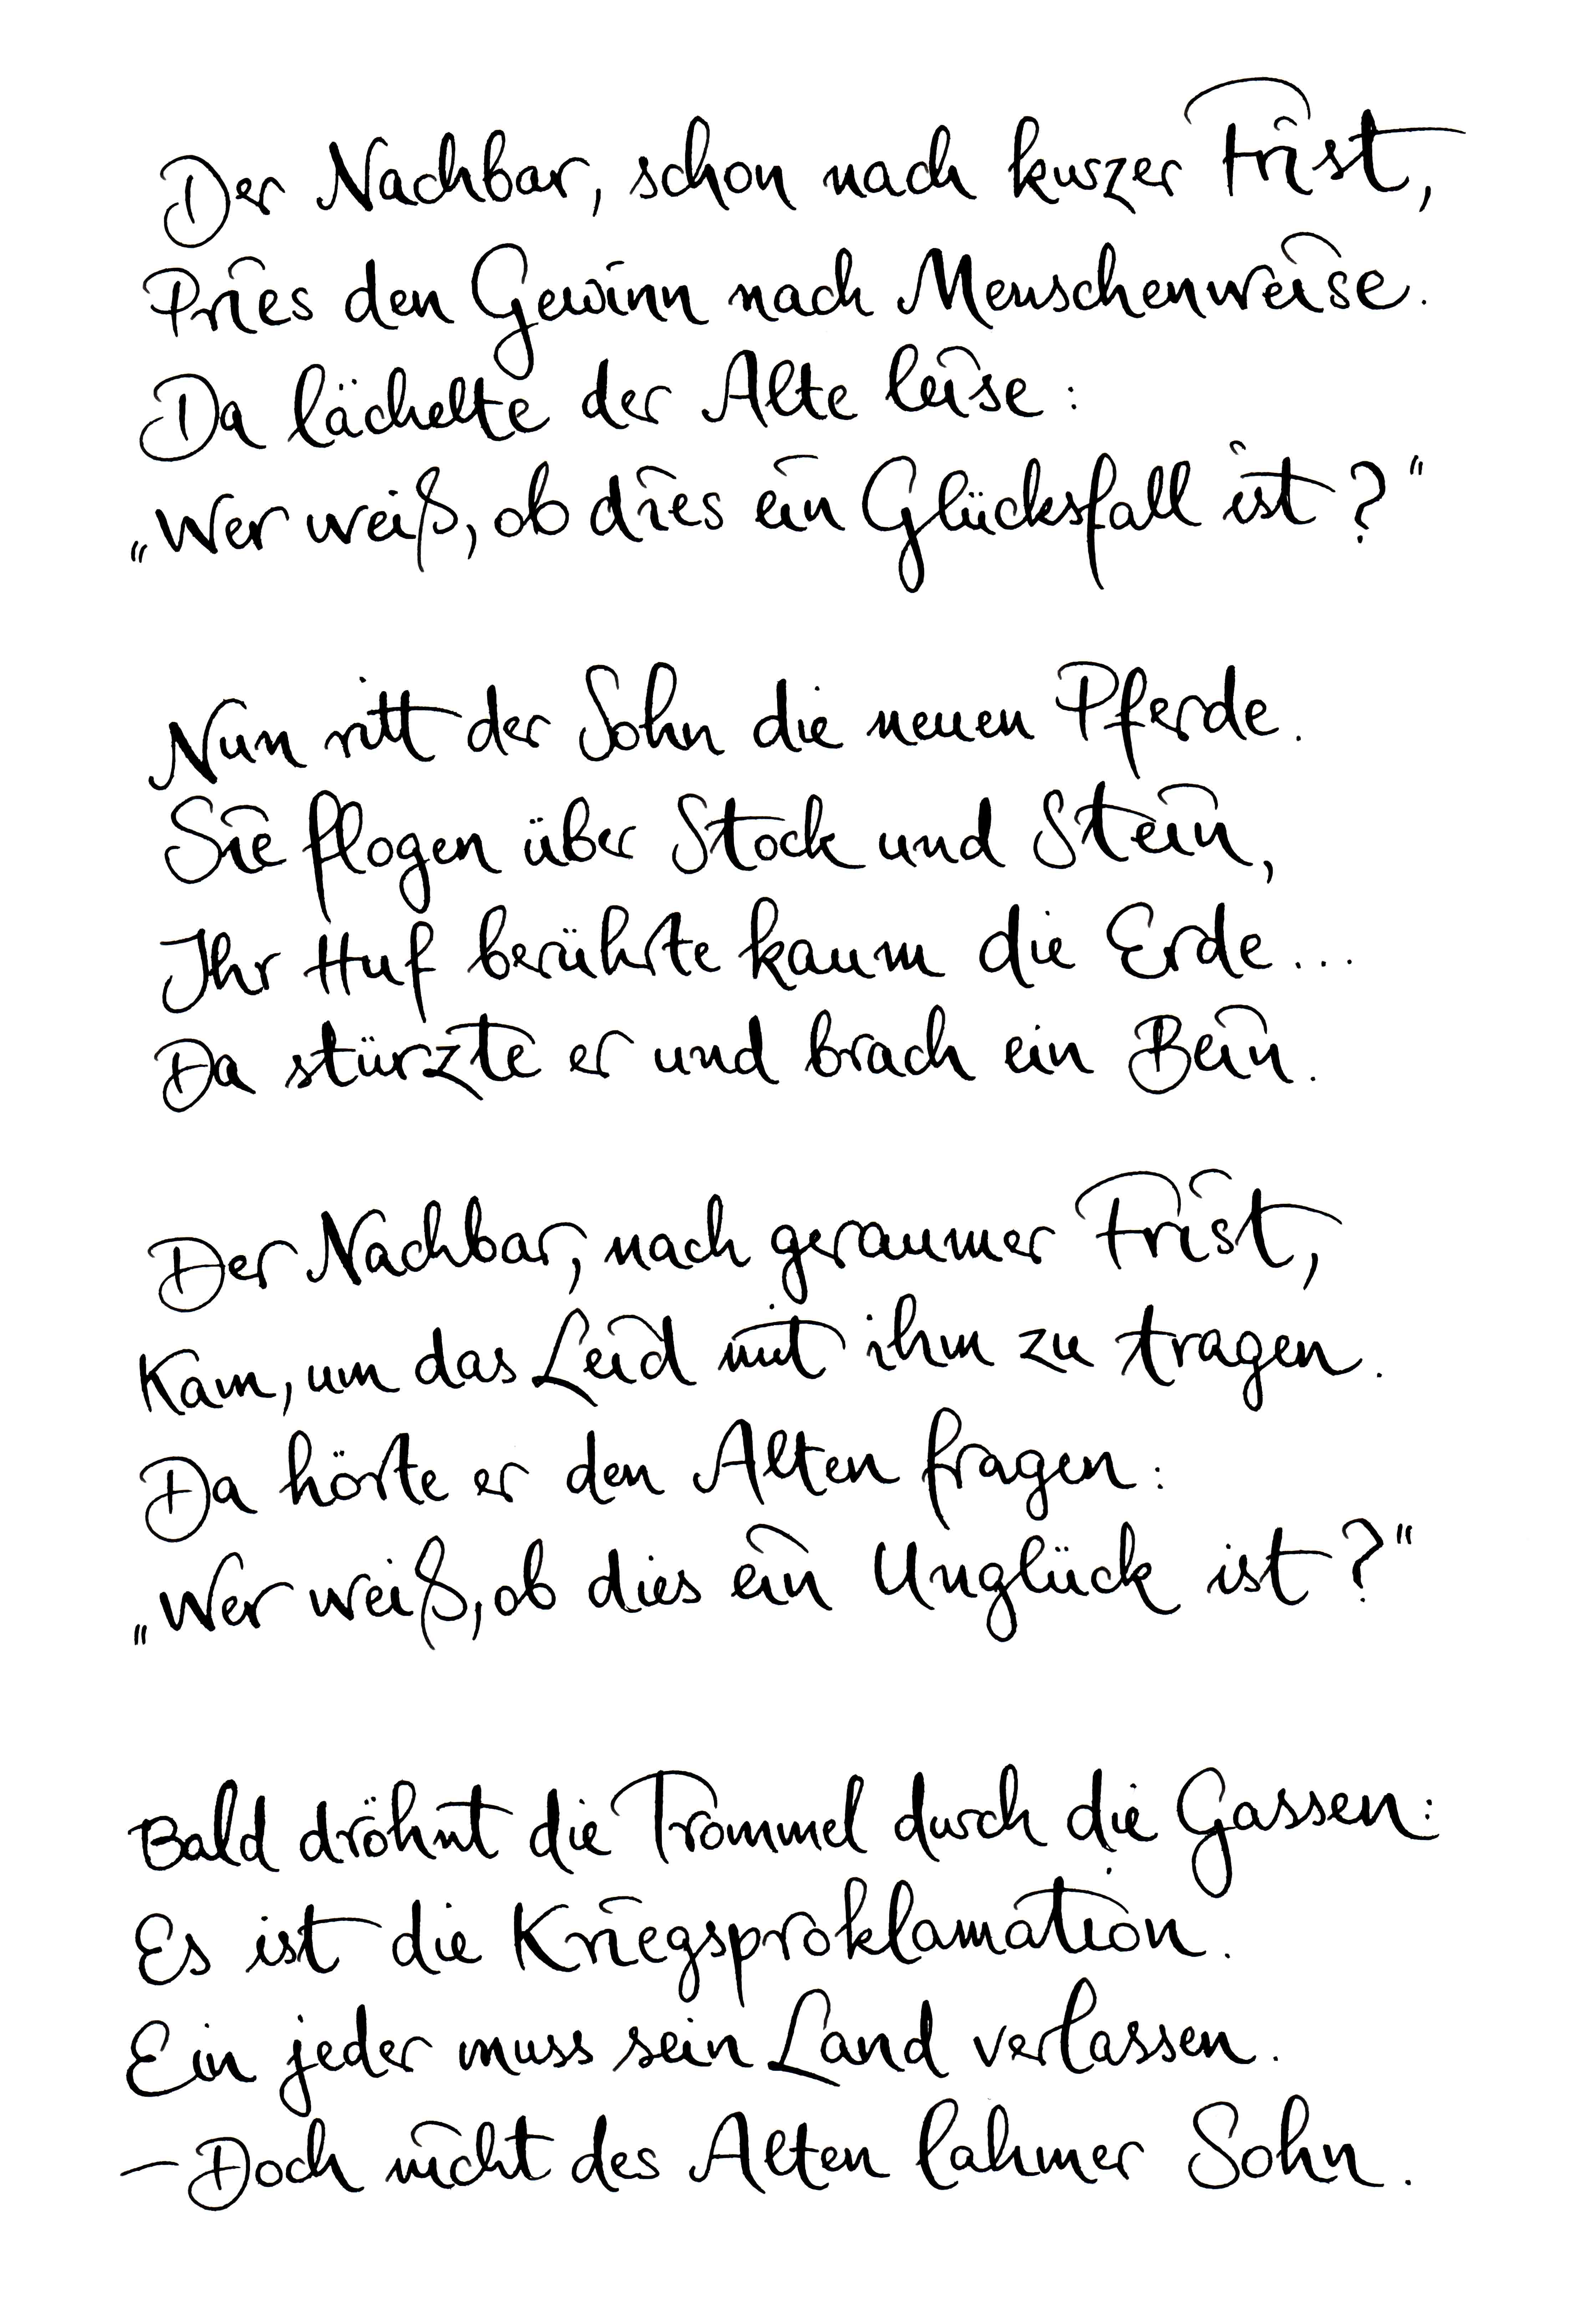 Der Nachbar, schon nach kurzer Frist,
Pries den Gewinn nach Menschenweise.
Da lächelte der Alte leise:
„Wer weiß, ob dies ein Glücksfall ist?“
Nun ritt der Sohn die neuen Pferde.
Sie flogen über Stock und Stein,
Ihr Huf berührte kaum die Erde...
Da stürzte er und brach ein Bein.
Der Nachbar, nach geraumer Frist,
Kam, um das Leid mit ihm zu tragen.
Da hörte er den Alten fragen:
„Wer weiß, ob dies ein Unglück ist?“
Bald dröhnt die Trommel durch die Gassen:
Es ist die Kriegsproklamation.
Ein jeder muss sein Land verlassen.
– Doch nicht des Alten lahmer Sohn.